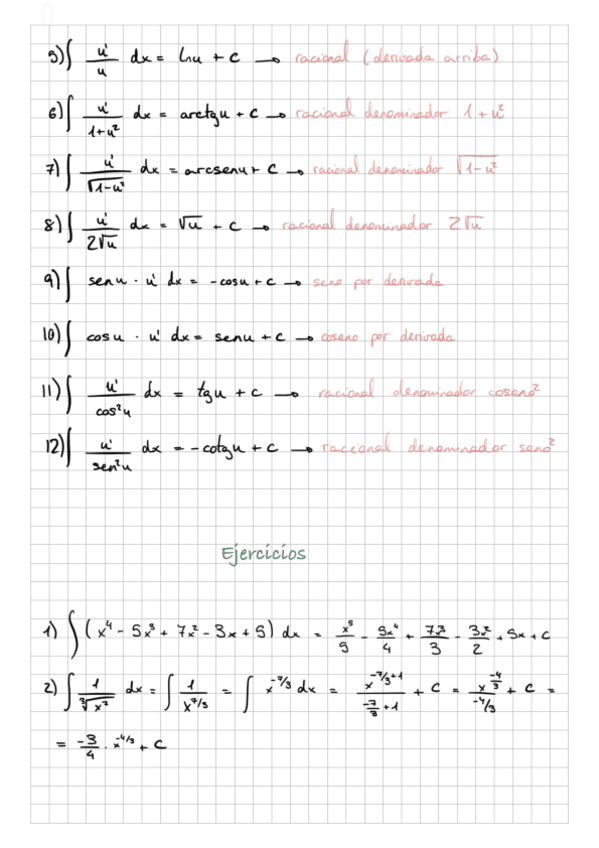 5) ∫ u'/u dx = lnu + c → racional (derivada arriba)
6) ∫ u'/1+u² dx = arctgu + c → racional denominador 1+u²
7) ∫ u'/√1-u² dx = arcsenu + c → racional denominador √1-u²
8) ∫ u'/2√u dx = √u + c → racional denominador 2√u
9) ∫ senu · u' dx = -cosu + c → seno por derivada
10) ∫ cosu · u' dx = senu + c → coseno por derivada
11) ∫ u'/cos²u dx = tgu + c → racional denominador coseno²
12) ∫ u'/sen²u dx = -cotgu + c → raccional denominador seno²
Ejercicios
1) ∫ (x⁴ - 5x³ + 7x² - 3x + 5) dx = x⁵/5 - 5x⁴/4 + 7x³/3 - 3x²/2 + 5x + c
2) ∫ 1/∛x⁷ dx = ∫ 1/x^7/3 = ∫ x^-7/3 dx = x^-7/3+1 / -7/3+1 + c = x^-4/3 / -4/3 + c =
= -3/4 · x^-4/3 + c